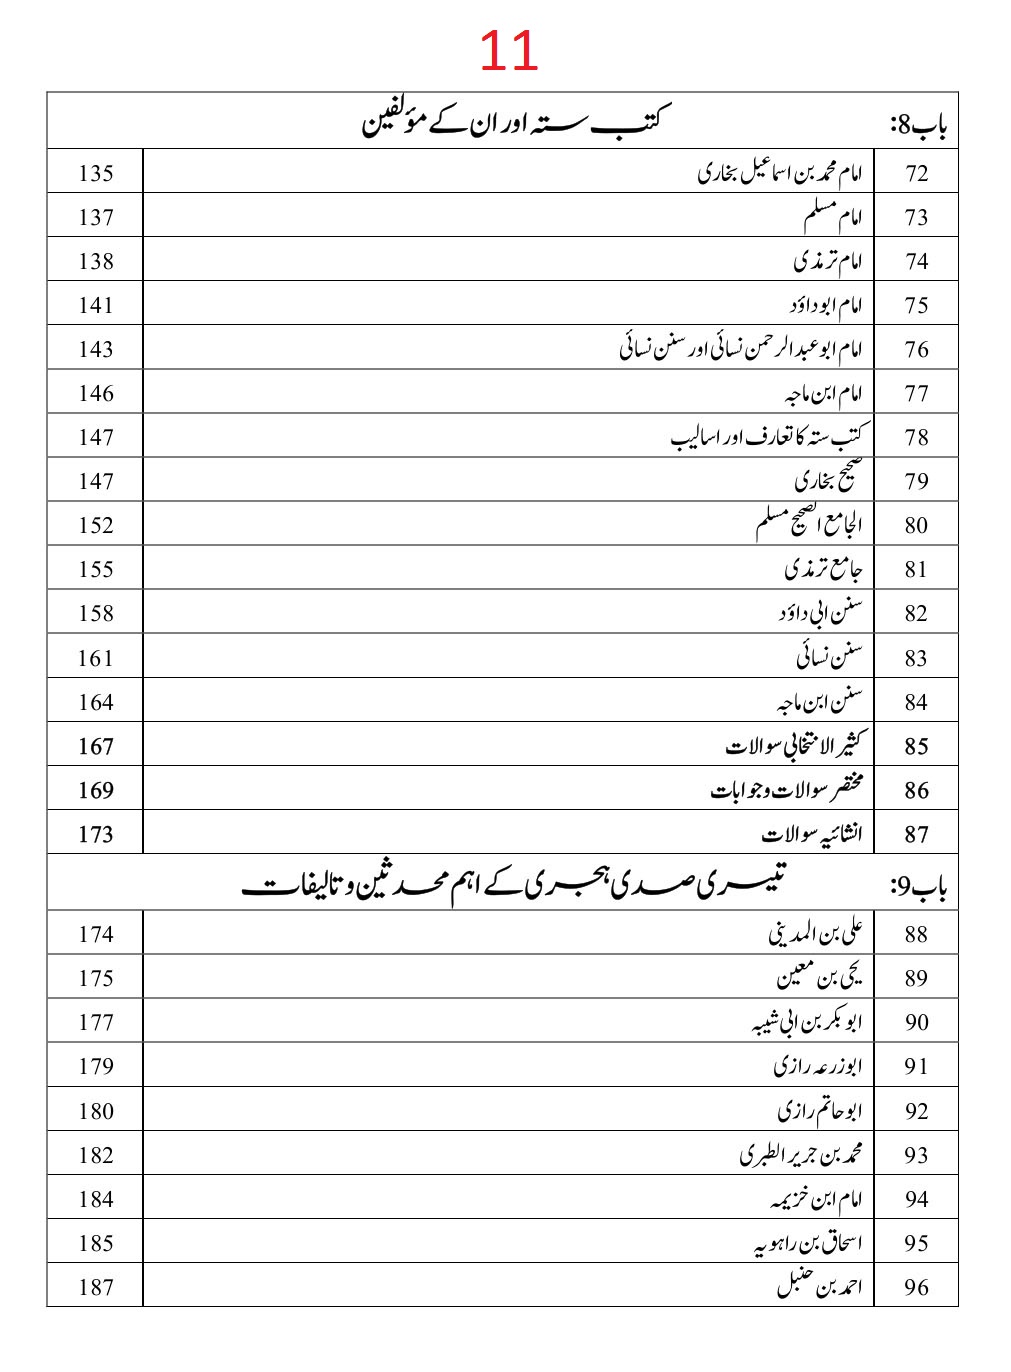 11
باب8: کتب ستہ اور ان کے مؤلفین
72 امام محمد بن اسماعیل بخاری 135
73 امام مسلم 137
74 امام ترمذی 138
75 امام ابو داؤد 141
76 امام ابو عبد الرحمن نسائی اور سنن نسائی 143
77 امام ابن ماجہ 146
78 کتب ستہ کا تعارف اور اسالیب 147
79 صحیح بخاری 147
80 الجامع الصحیح مسلم 152
81 جامع ترمذی 155
82 سنن ابی داؤد 158
83 سنن نسائی 161
84 سنن ابن ماجہ 164
85 کثیر الانتخابی سوالات 167
86 مختصر سوالات وجوابات 169
87 انشائیہ سوالات 173
باب9: تیسری صدی ہجری کے اہم محدثین و تالیفات
88 علی بن المدینی 174
89 یحی بن معین 175
90 ابو بکر بن ابی شیبہ 177
91 ابوزرعہ رازی 179
92 ابو حاتم رازی 180
93 محمد بن جریر الطبری 182
94 امام ابن خزیمہ 184
95 اسحاق بن راہویہ 185
96 احمد بن حنبل 187